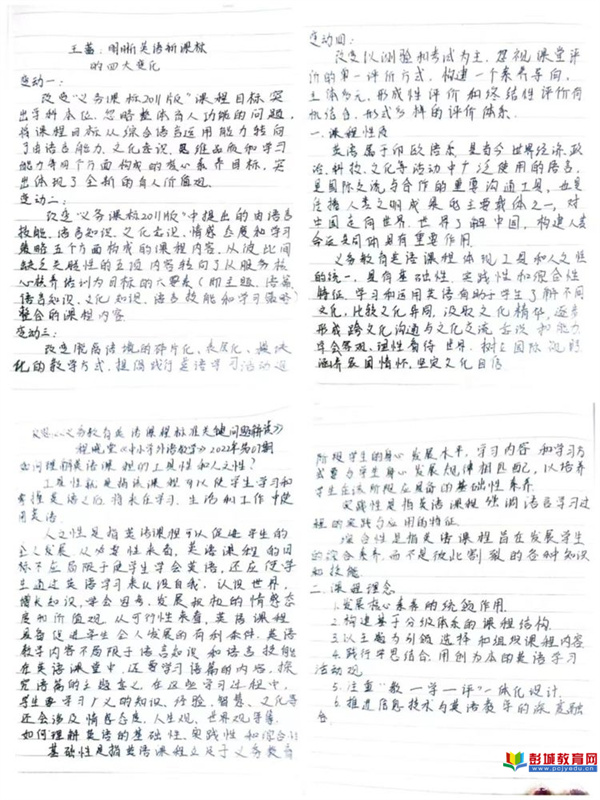 王蔷：明晰英语新课标
的四大变化
变动一：
改变"义务课标2011版"课程目标突
出学科本位，忽略整体育人功能的问题，
将课程目标从综合语言运用能力转向
了由语言能力、文化意识、思维品质和学习
能力等四个方面构成的核心素养目标，突
出体现了全新的育人价值观。
变动二：
改变"义务课标2011版"中提出的由语言
技能、语言知识、文化意识、情感态度和学习
策略五个方面构成的课程内容，从彼此间
缺乏关联性的五项内容转向了从服务核
心素养培训为目标的六要素（即主题、语篇、
语言知识、文化知识、语言技能和学习策略）
整合的课程内容
变动三：
改变脱离语境的碎片化、表层化、模块
化的教学方式，提倡践行英语学习活动观
变动四：
改变以测验和考试为主，忽视课堂评
价的单一评价方式，构建一个素养导向，
主体多元，形成性评价和终结性评价有
机结合，形式多样的评价体系
一、课程性质
英语属于印欧语系，是当今世界经济、政
治、科技、文化等活动中广泛使用的语言，
是国际交流与合作的重要沟通工具，也是
传播人类文明成果的主要载体之一，对
中国走向世界，世界了解中国，构建人类
命运共同体具有重要作用
义务教育英语课程体现工具和人文性
的统一，具有基础性、实践性和综合性
特征，学习和运用英语有助于学生了解不同
文化，比较文化异同，汲取文化精华，逐步
形成跨文化沟通与文化交流意识和能力
学会客观、理性看待世界，树立国际视野
涵养家国情怀，坚定文化自信
《义务教育英语课程标准关键问题解读》
程晓堂《中小学外语教学》2022年第07期
如何理解英语课程的工具性和人文性？
工具性就是指该课程可以使学生学习和
掌握英语之后将来在学习、生活和工作中使
用英语
人文性是指英语课程可以促进学生的
全人发展，从必要性来看，英语课程的目
标不应局限于使学生学会英语，还应使学
生通过英语学习来认识自我，认识世界，
增长知识，学会思考，发展积极的情感态
度和价值观，从可行性来看，英语课程
具备促进学生全人发展的有利条件，英语
教学内容不局限于语言知识和语言技能
在英语课堂中，还要学习语篇的内容，探
究语篇的主题意义，在这些学习过程中，
学生要学习广义的知识、经验、智慧、文化等
还会涉及情感态度，人生观，世界观等等
如何理解英语的基础性、实践性和综合性
基础性是指英语课程立足于义务教育
阶段学生的身心发展水平，学习内容和学习方
式要与学生身心发展规律相匹配，以培养
学生在该阶段应具备的基础性素养
实践性是指英语课程强调语言学习过
程的实践与应用的特征
综合性是指英语课程旨在发展学生
的综合素养，而不是彼此割裂的各种知识
和技能
二、课程理念
1.发展核心素养的统领作用
2.构建基于分级体系的课程结构
3.以主题为引领选择和组织课程内容
4.践行学思结合，用创为本的英语学习
活动观
5.注重"教—学—评"一体化设计
6.推进信息技术与英语教学的深度融
合
彭城教育网
www.pcjyedu.cn